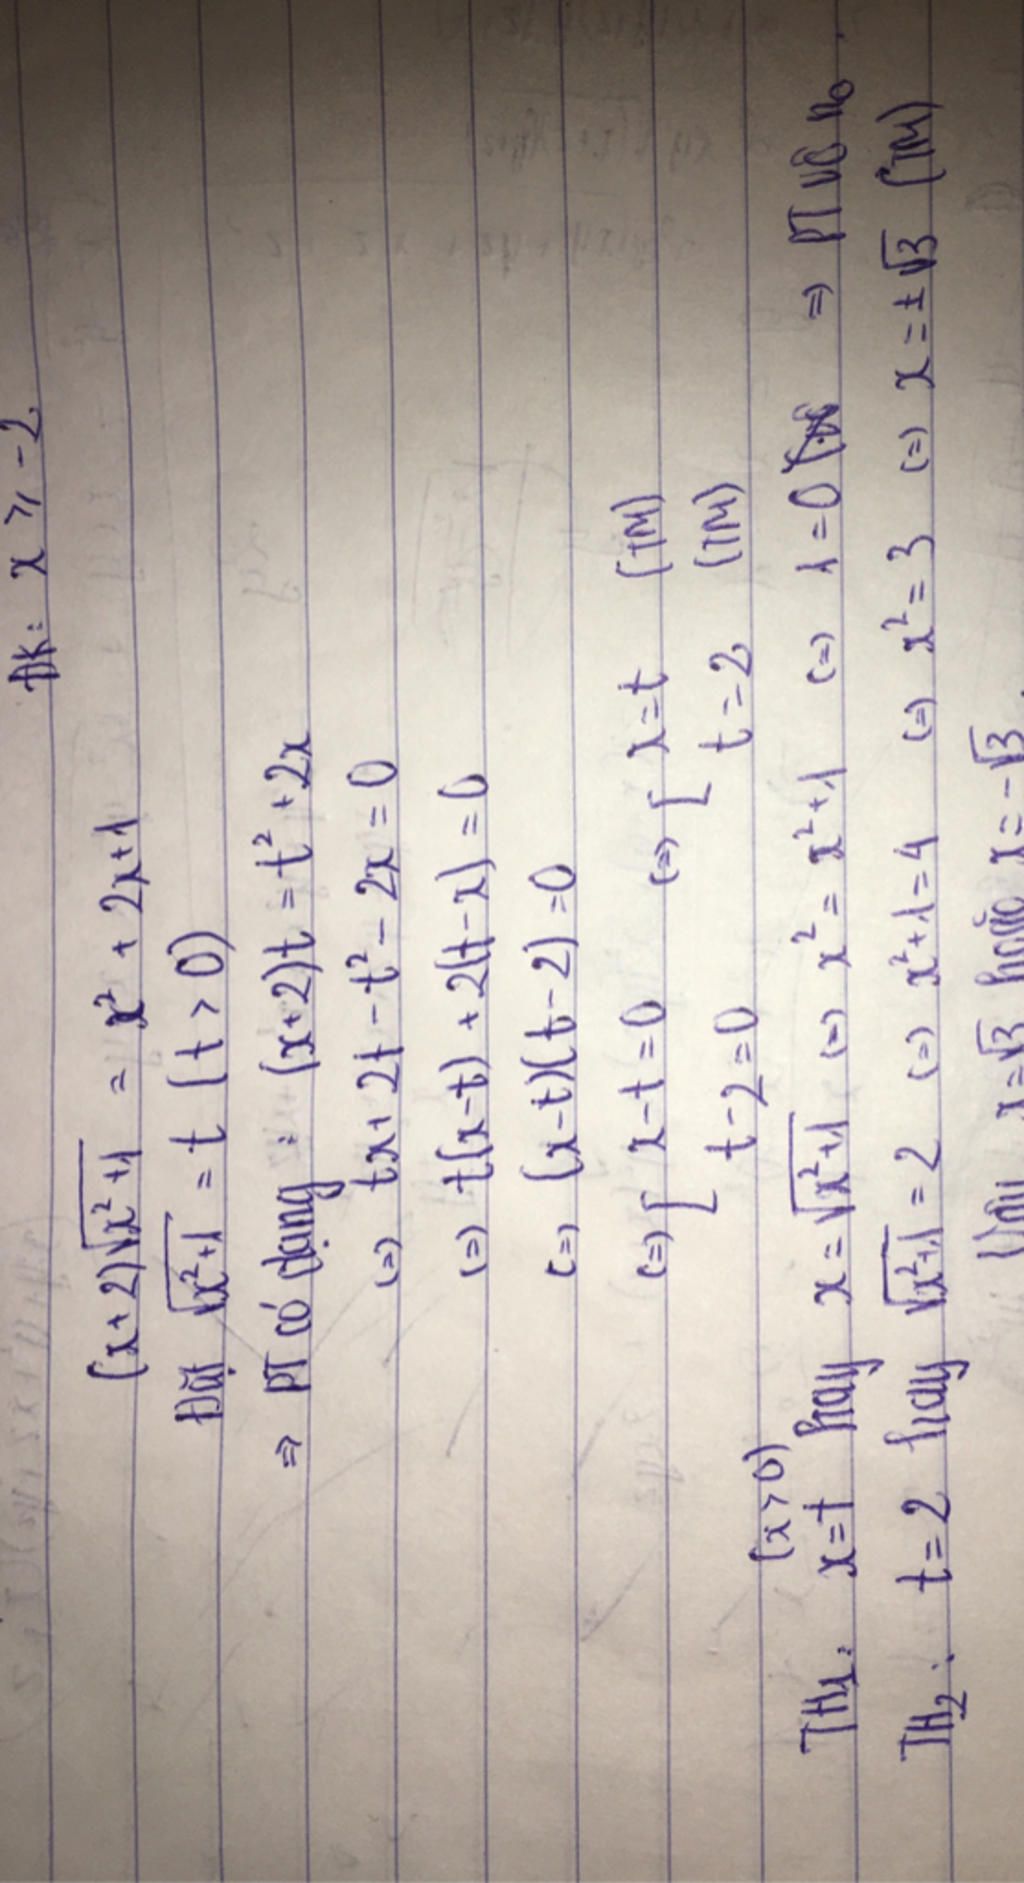 ĐK: x ⩾ -2.
(x+2)√x²+1 = x² + 2x+1
Đặt √x²+1 = t (t > 0)
=> PT có dạng : (x+2)t = t² + 2x
(=) tx + 2t - t² - 2x = 0
(=) t(x-t) + 2(t-x) = 0
(=) (x-t)(t-2) = 0
(=) [ x-t = 0 (=) [ x = t (TM)
t-2 = 0 t = 2 (TM)
(x > 0)
TH1: x = t hay x = √x²+1 (=) x² = x²+1 (=) 1 = 0 => PT vô no.
TH2: t = 2 hay √x²+1 = 2 (=) x²+1 = 4 (=) x² = 3 (=) x = ± √3 (TM)
Vậy x = √3 hoặc x = -√3.